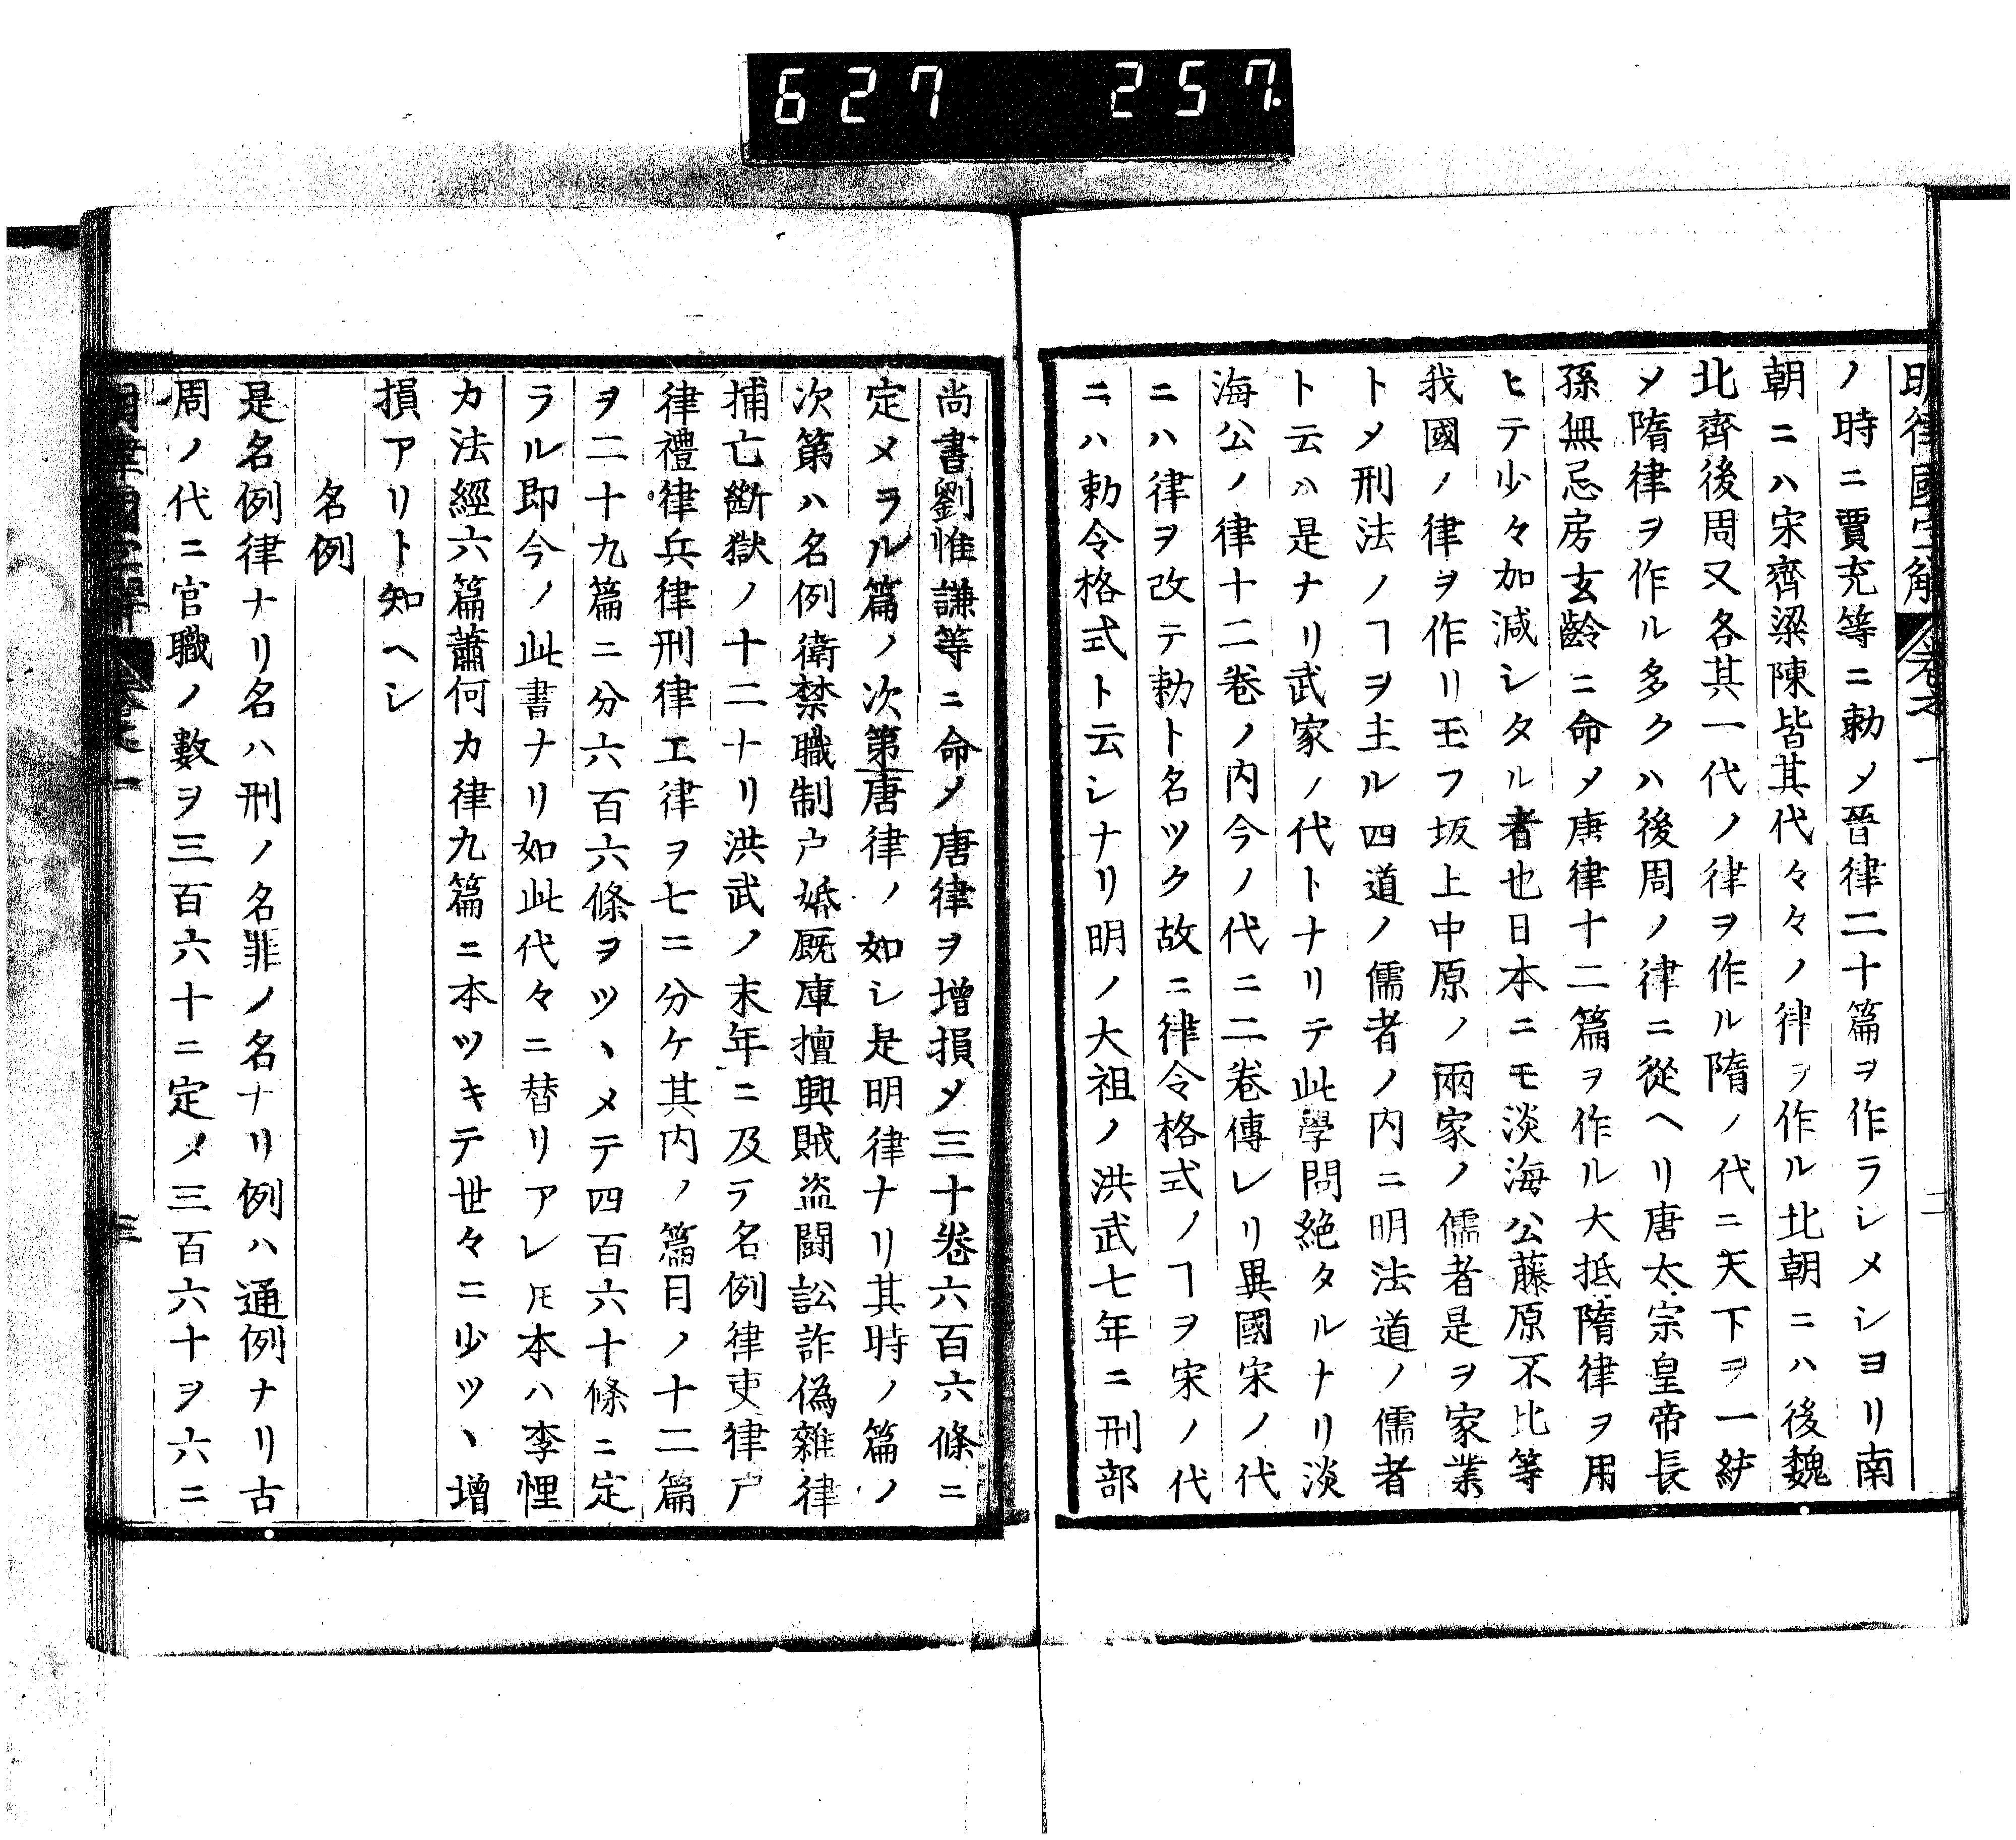 627 257.
明律國字解 卷之一 二
ノ時ニ賈充等ニ勅メ晉律二十篇ヲ作ラシメシヨリ南
朝ニハ宋齊梁陳皆其代々々ノ律ヲ作ル北朝ニハ後魏
北齊後周又各其一代ノ律ヲ作ル隋ノ代ニ天下ヲ一統
メ隋律ヲ作ル多クハ後周ノ律ニ從ヘリ唐太宗皇帝長
孫無忌房玄齡ニ命メ唐律十二篇ヲ作ル大抵隋律ヲ用
ヒテ少々加減シタル者也日本ニモ淡海公藤原不比等
我國ノ律ヲ作リ玉フ坂上中原ノ兩家ノ儒者是ヲ家業
トメ刑法ノヿヲ主ル四道ノ儒者ノ内ニ明法道ノ儒者
ト云ハ是ナリ武家ノ代トナリテ此學問絶タルナリ淡
海公ノ律十二卷ノ内今ノ代ニ二卷傳レリ異國宋ノ代
ニハ律ヲ改テ勅ト名ツク故ニ律令格式ノヿヲ宋ノ代
ニハ勅令格式ト云シナリ明ノ大祖ノ洪武七年ニ刑部
尚書劉惟謙等ニ命メ唐律ヲ增損メ三十卷六百六條ニ
定メヲル篇ノ次第唐律ノ如シ是明律ナリ其時ノ篇ノ
次第ハ名例衛禁職制戸婚厩庫擅興賊盗鬪訟詐僞雜律
捕亡斷獄ノ十二ナリ洪武ノ末年ニ及テ名例律吏律戸
律禮律兵律刑律工律ヲ七ニ分ケ其内ノ篇目ノ十二篇
ヲ二十九篇ニ分六百六條ヲツヽメテ四百六十條ニ定
ラル即今ノ此書ナリ如此代々ニ替リアレ𪜈本ハ李悝
カ法經六篇蕭何カ律九篇ニ本ツキテ世々ニ少ツヽ增
損アリト知ヘシ
名例
是名例律ナリ名ハ刑ノ名罪ノ名ナリ例ハ通例ナリ古
周ノ代ニ官職ノ數ヲ三百六十ニ定メ三百六十ヲ六ニ
明律國字解 卷之一 三